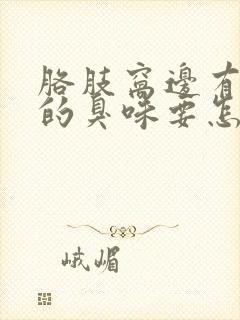 胳肢窝邊有
的臭味要怎
峨嵋